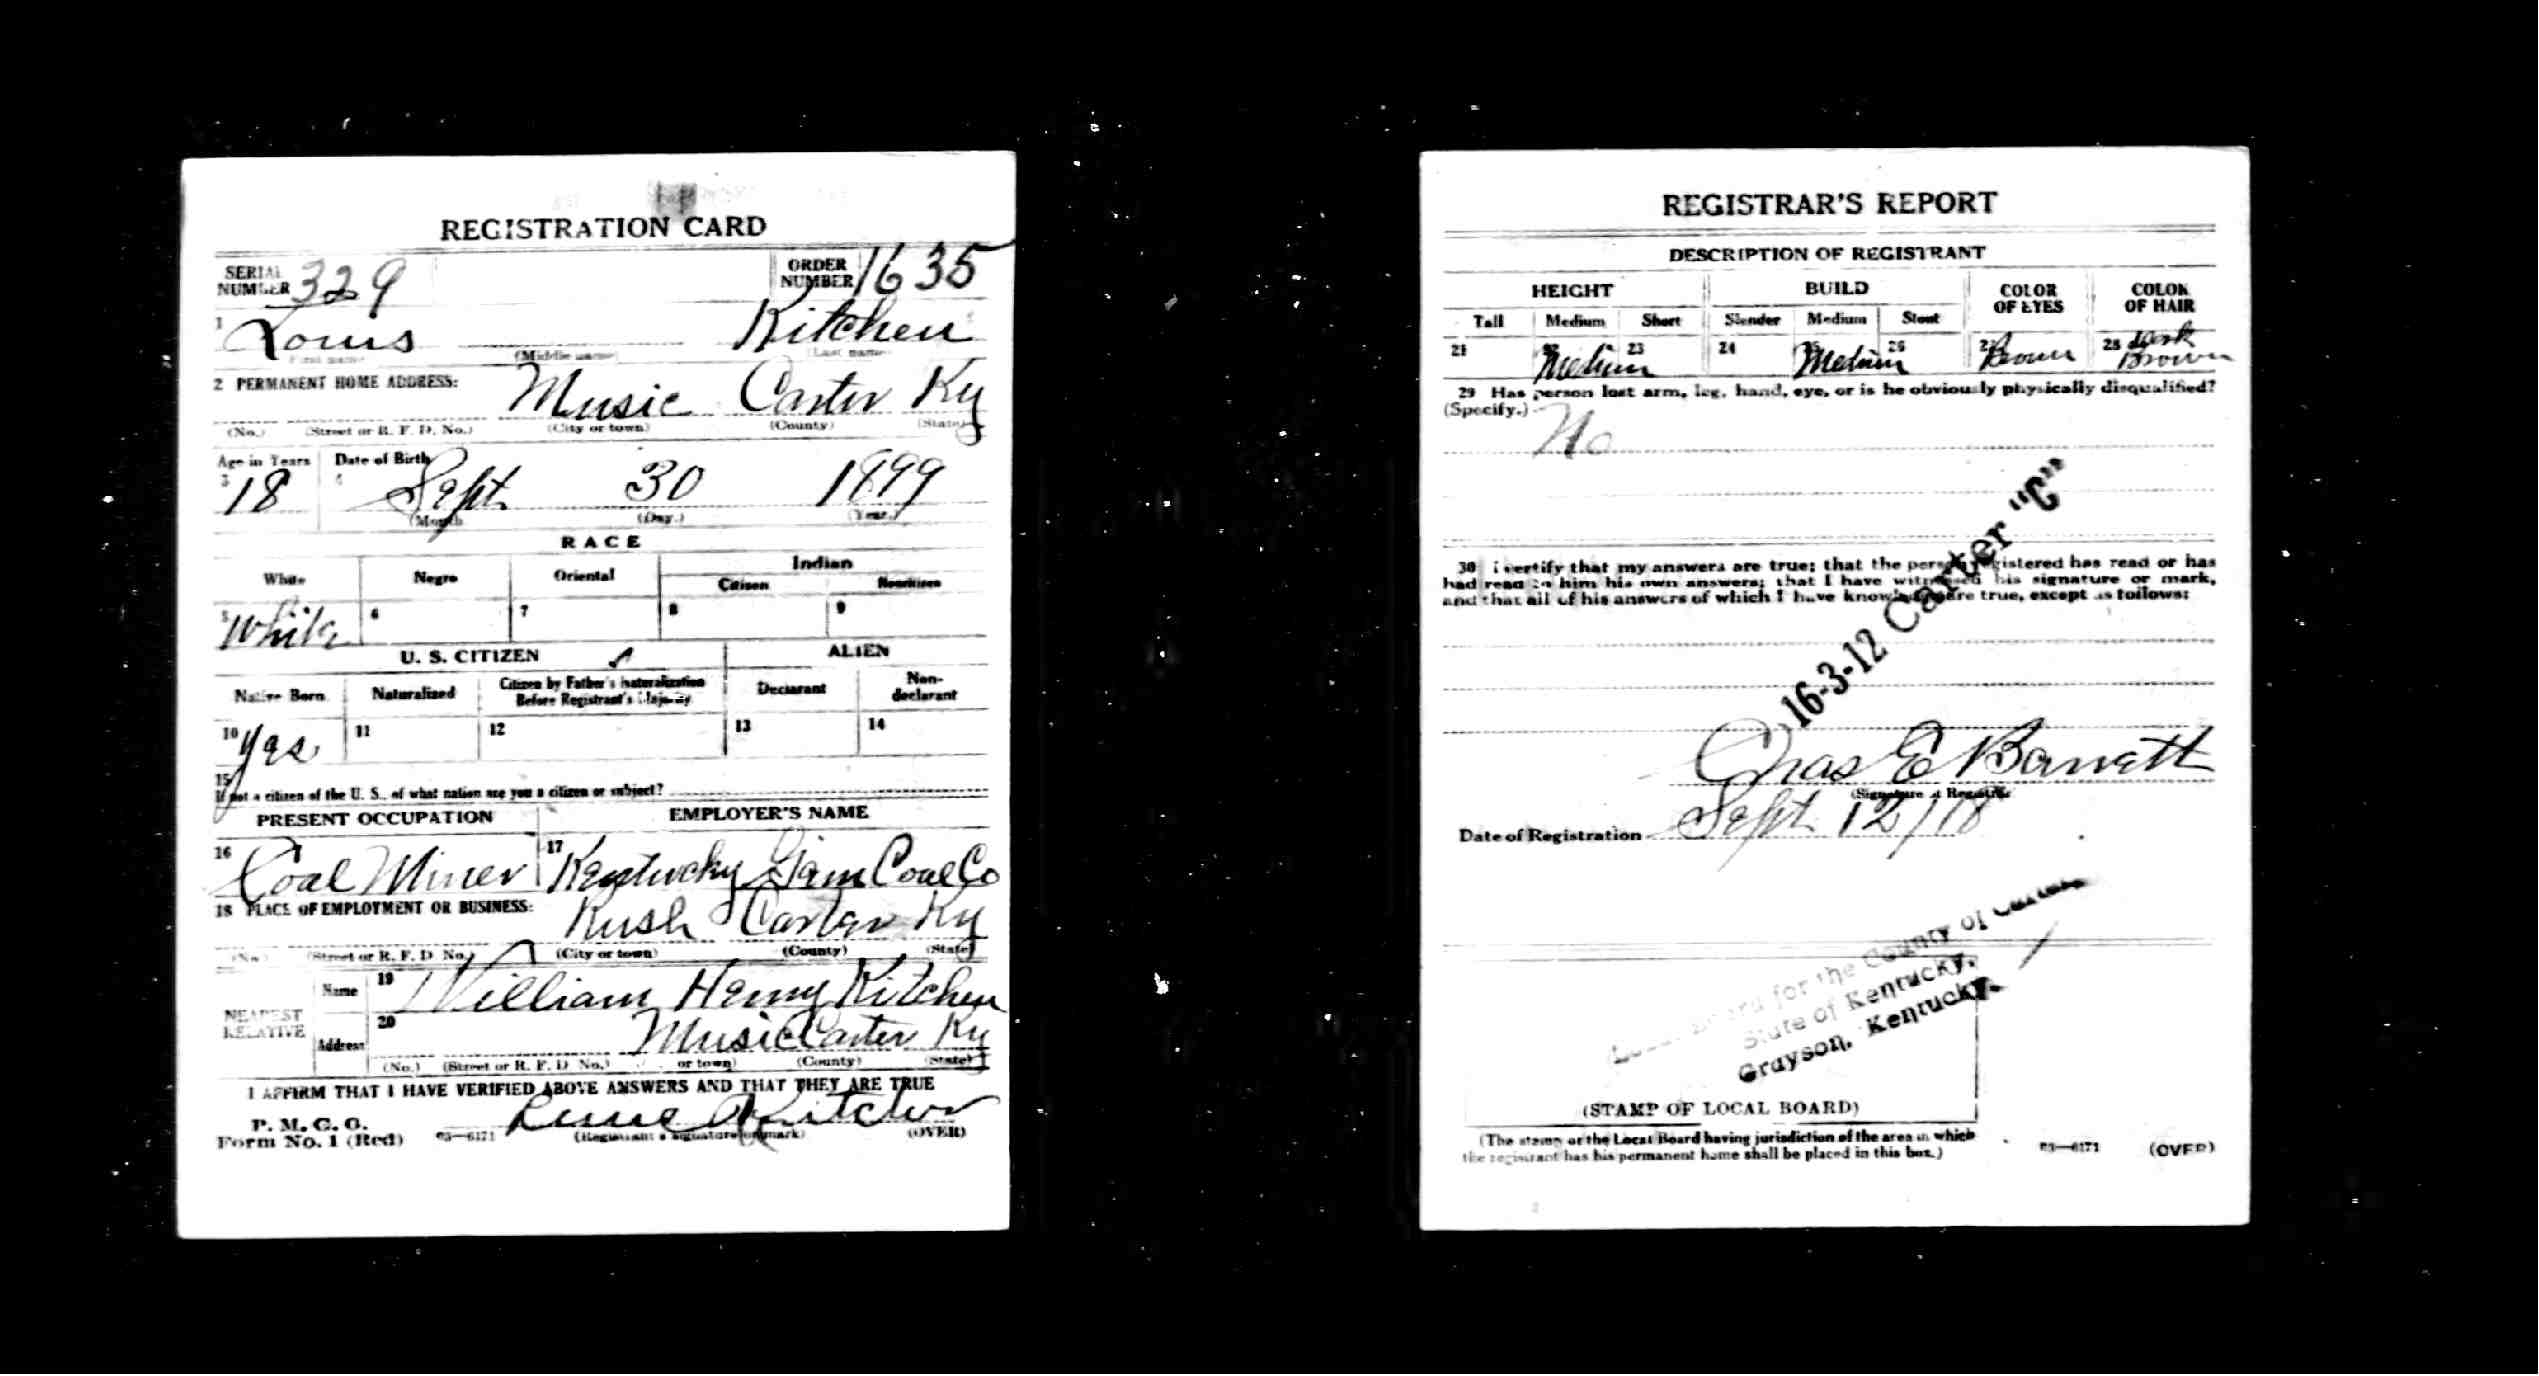 REGISTRATION CARD
SERIAL NUMBER 329 ORDER NUMBER 1635
1 Louis Kitchen
First name (Middle name) (Last name)
2 PERMANENT HOME ADDRESS:
Music Carter Ky
(No.) (Street or R. F. D. No.) (City or town) (County) (State)
Age in Years Date of Birth
3 18 4 Sept 30 1899
(Month) (Day.) (Year.)
RACE
White Negro Oriental Indian
Citizen Noncitizen
5 White 6 7 8 9
U. S. CITIZEN ALIEN
Native Born Naturalized Citizen by Father's Naturalization Before Registrant's Majority Declarant Non-declarant
10 Yes 11 12 13 14
15
If not a citizen of the U. S., of what nation are you a citizen or subject?
PRESENT OCCUPATION EMPLOYER'S NAME
16 Coal Miner 17 Kentucky Coal Co
18 PLACE OF EMPLOYMENT OR BUSINESS:
Rush Carter Ky
(No.) (Street or R. F. D. No.) (City or town) (County) (State)
NEAREST RELATIVE
Name 19 William Henry Kitchen
Address 20 Music Carter Ky
(No.) (Street or R. F. D. No.) or town) (County) (State)
I AFFIRM THAT I HAVE VERIFIED ABOVE ANSWERS AND THAT THEY ARE TRUE
P. M. G. O.
Form No. 1 (Red) 03—6171 Kitchen
(Registrant's signature or mark) (OVER)
REGISTRAR'S REPORT
DESCRIPTION OF REGISTRANT
HEIGHT BUILD COLOR OF EYES COLOR OF HAIR
Tall Medium Short Slender Medium Stout
21 22 Medium 23 24 25 Medium 26 27 Brown 28 dark Brown
29 Has person lost arm, leg, hand, eye, or is he obviously physically disqualified?
(Specify.)
No
30 I certify that my answers are true; that the person registered has read or has
had read to him his own answers; that I have witnessed his signature or mark,
and that all of his answers of which I have knowledge are true, except as follows:
16-3-12 Carter "C"
Chas E Barrett
(Signature of Registrar)
Date of Registration Sept 12/18
Local Board for the County of Carter,
State of Kentucky,
Grayson, Kentucky.
(STAMP OF LOCAL BOARD)
(The stamp of the Local Board having jurisdiction of the area in which
the registrant has his permanent home shall be placed in this box.)
03—6171 (OVER)